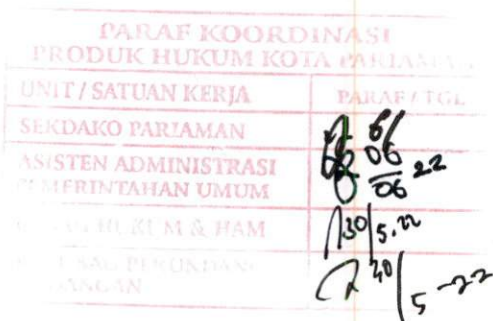 PARAF KOORDINASI
PRODUK HUKUM KOTA PARIAMAN
UNIT / SATUAN KERJA PARAF / TGL
SEKDAKO PARIAMAN 6/
ASISTEN ADMINISTRASI 06
PEMERINTAHAN UMUM 06 22
HUKUM & HAM 30/5.22
PERUNDANG 30/5-22